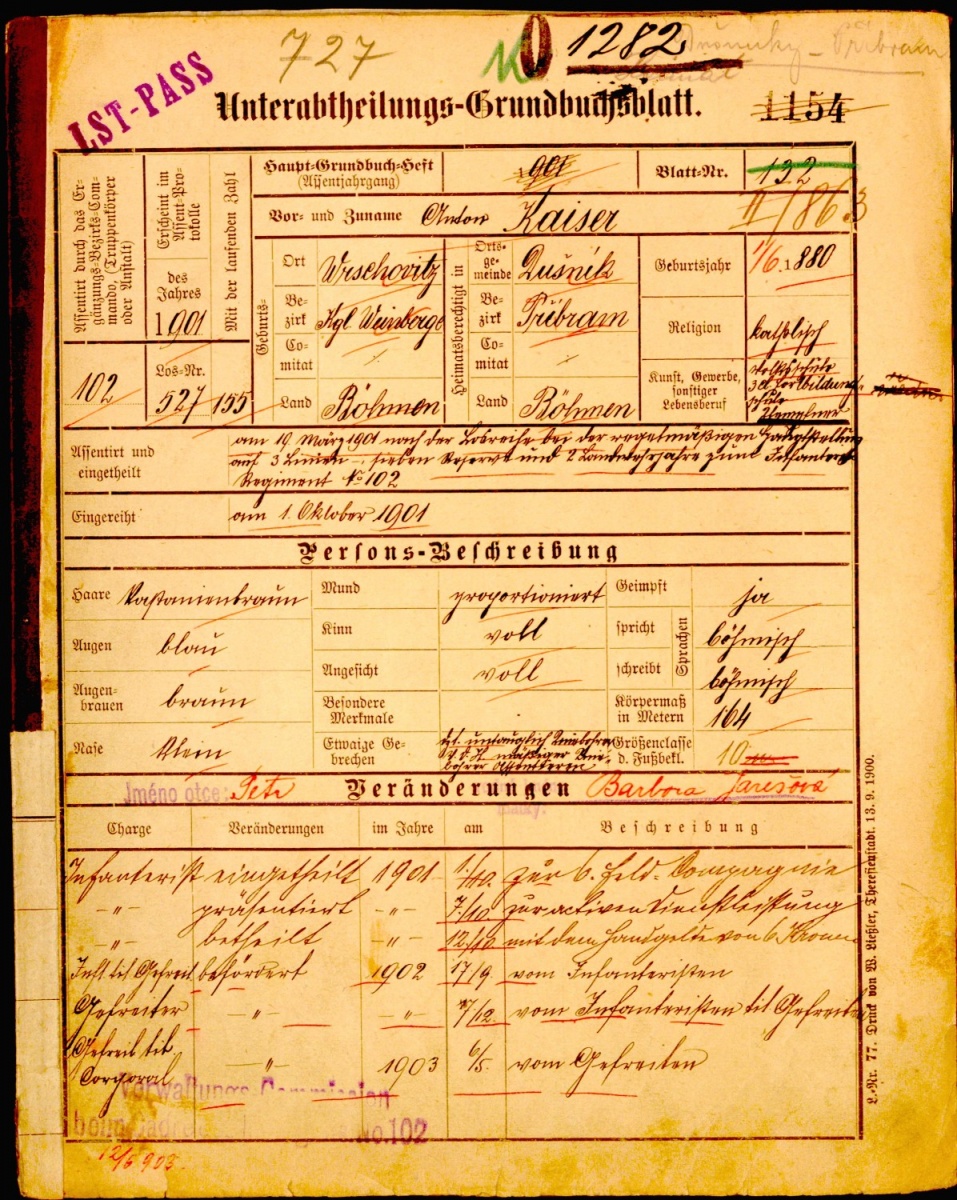 727
1282
Dušníky – Příbram
LST-PASS
Unterabtheilungs-Grundbuchsblatt.
1154
Assentirt durch das Er-
gänzungs-Bezirks-Com-
mando, (Truppenkörper
oder Anstalt)
102
Erscheint im
Assent-Pro-
tokolle
des
Jahres
1901
Los-Nr.
527
Mit der laufenden Zahl
155
Haupt-Grundbuch-Heft
(Assentjahrgang)
901
Blatt-Nr.
132
Vor- und Zuname Anton Kaiser
II/86.3
Geburts-
Ort Wrschovitz
Be-
zirk Kgl Weinberge
Co-
mitat
Land Böhmen
Heimatsberechtigt in
Orts-
ge-
meinde Dušnik
Be-
zirk Přibram
Co-
mitat
Land Böhmen
Geburtsjahr 1/6. 1880
Religion katholisch
Kunst, Gewerbe,
sonstiger
Lebensberuf
Volksschule
3 Cl. Fortbildungs-
schule
Assentirt und
eingetheilt
am 19. März 1901 nach der Losreihe bei der regelmäßigen Hauptstellung
auf 3 Linien-, sieben Reserve und 2 Landwehrjahre zum Infanterie
Regiment No 102
Eingereiht am 1. Oktober 1901
Persons-Beschreibung
Haare Kastanienbraun
Augen blau
Augen-
brauen braun
Nase klein
Mund proportioniert
Kinn voll
Angesicht voll
Besondere
Merkmale
Etwaige Ge-
brechen
Geimpft ja
spricht böhmisch
schreibt böhmisch
Sprachen
Körpermaß
in Metern 164
Größenclasse
d. Fußbekl. 10
Jméno otce: Petr
Veränderungen
Barbora Jarešová
Charge Veränderungen im Jahre am Beschreibung
Infanterist eingetheilt 1901 1./10. zur 6. Feld-Compagnie
-"- präsentiert -"- 7./10. zur activen Dienstleistung
-"- betheilt -"- 12./10 mit dem Handgelde von 6 Kronen
Inft tit Gefreit befördert 1902 17/9. vom Infanteristen
Gefreiter -"- -"- 7/12. vom Infanteristen tit Gefreiter
Gefreit tit
Corporal -"- 1903 6/5. vom Gefreiten
Verwaltungs-Commission
No. 102
12/6 903.
L.-Nr. 77. Druck von W. Ließler, Theresienstadt. 13. 9. 1900.